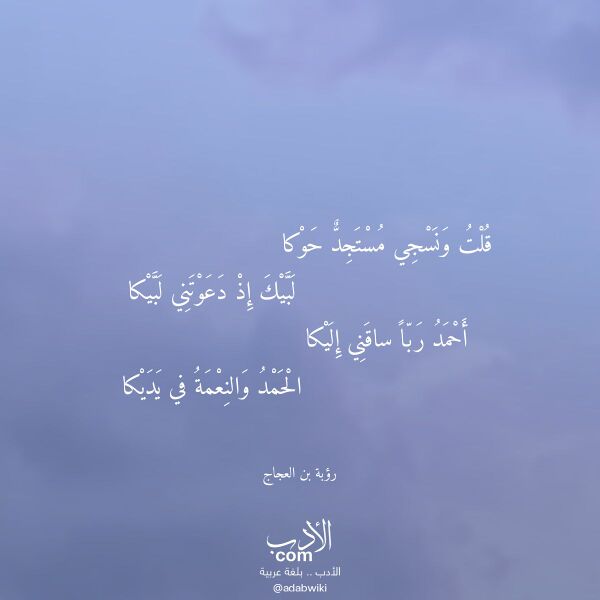 قُلْتُ وَنَسْجِي مُسْتَجِدٌّ حَوْكا
لَبَّيْكَ إِذْ دَعَوْتَنِي لَبَّيْكا
أَحْمَدُ رَبّاً ساقَنِي إِلَيْكا
الْحَمْدُ وَالنِعْمَةُ في يَدَيْكا
رؤبة بن العجاج
الأدب
com
الأدب .. بلغة عربية
@adabwiki